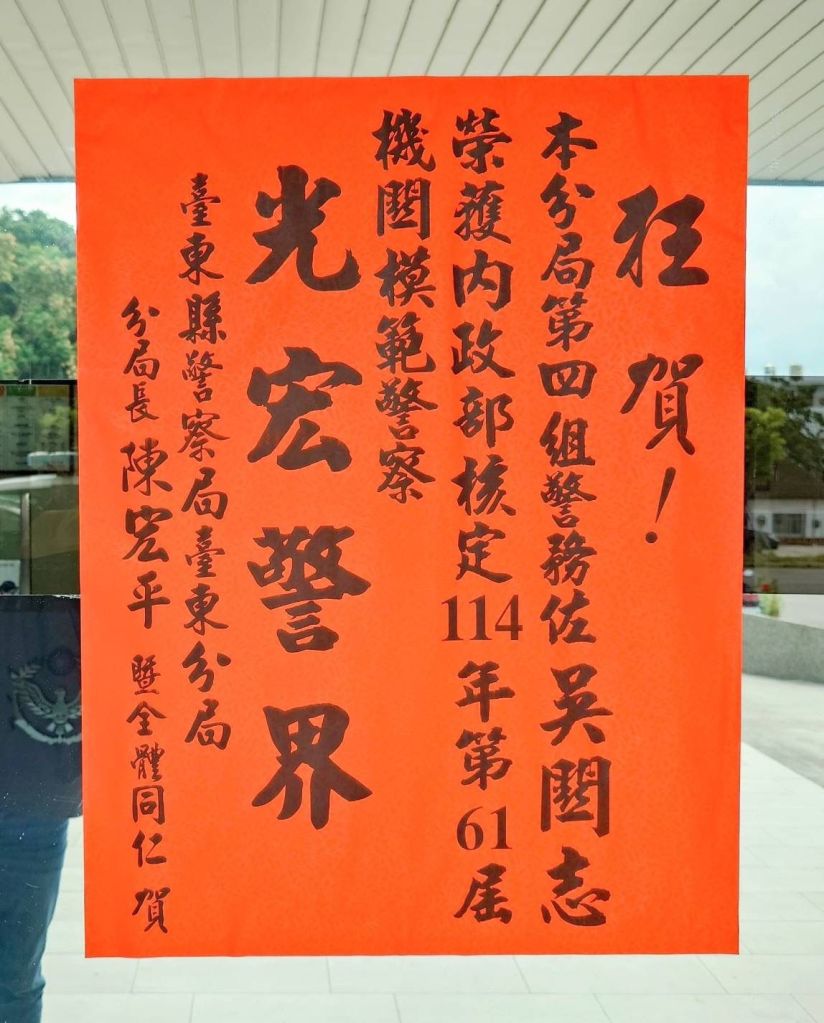 狂賀!
本分局第四組警務佐吳關志
榮獲內政部核定114年第61屆
機關模範警察
光宏警界
臺東縣警察局臺東分局
分局長陳宏平暨全體同仁賀